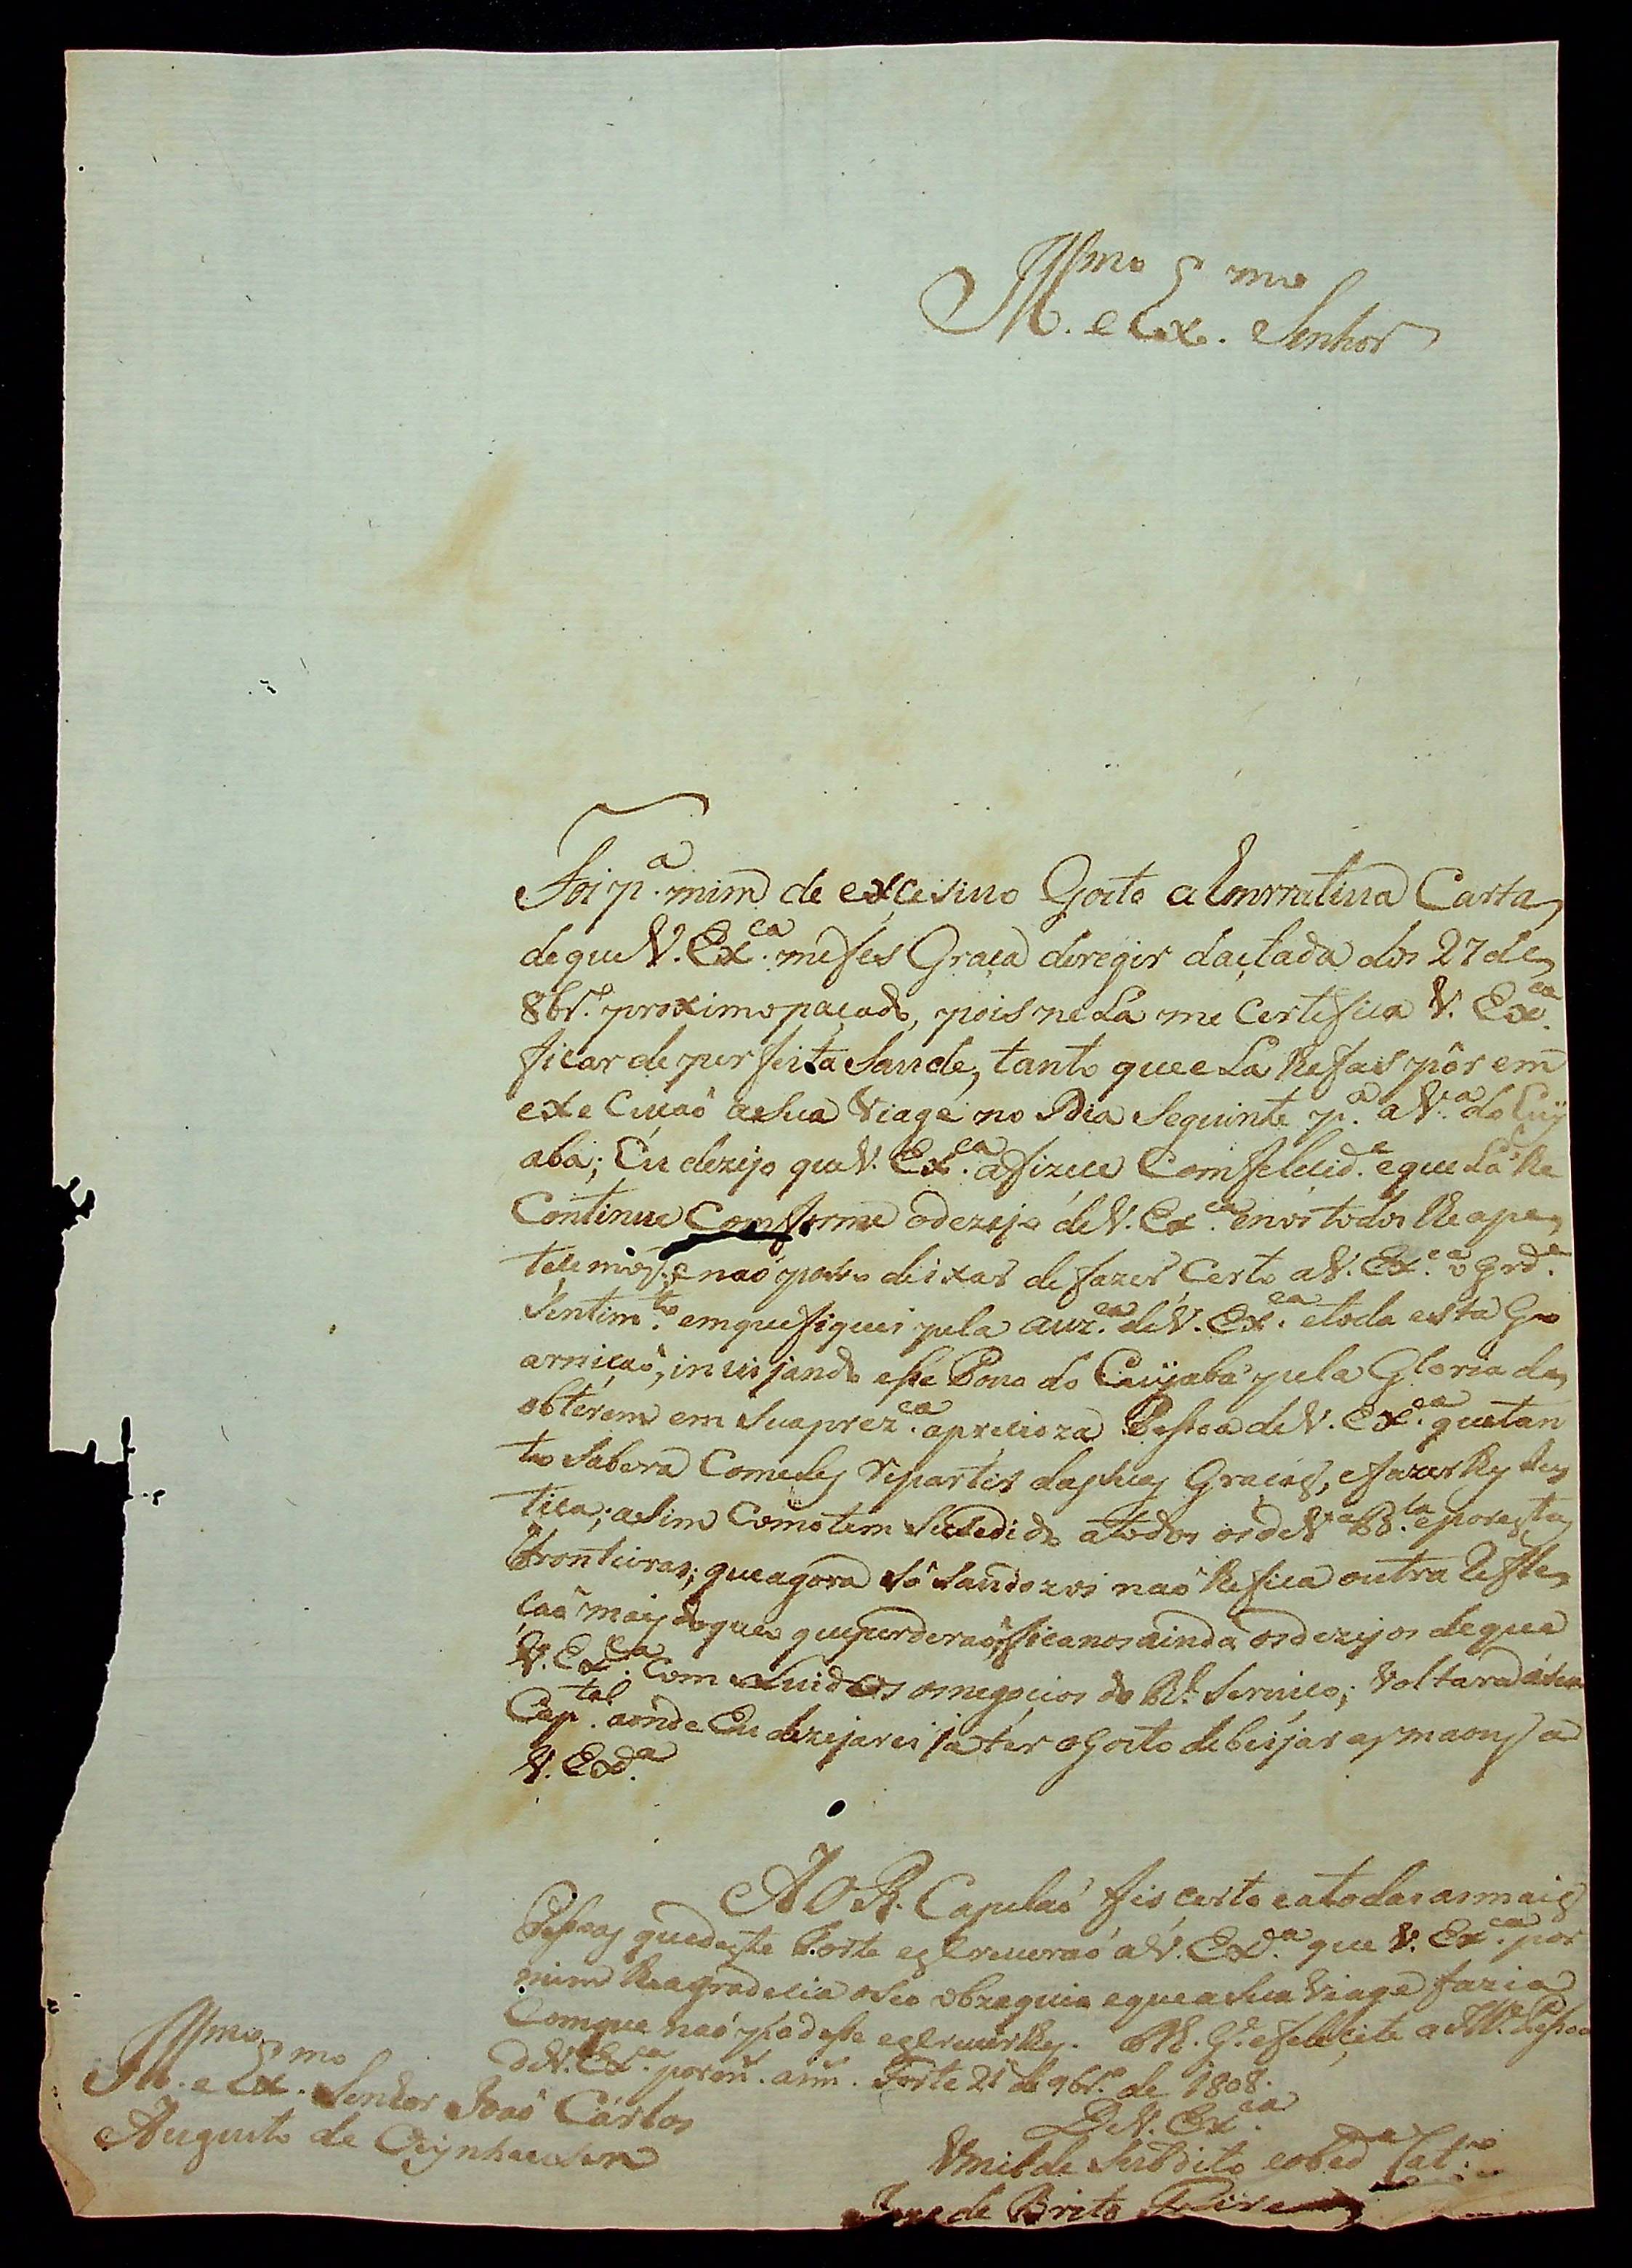 Ill.mo e Ex.mo Senhor
Foi p.a mim de excesivo Gosto a Carta
de que V. Ex.ca me fes Graça deregir dactada dos 27 de
8br.o proximo paçado, pois nela me Certefica V. Ex.ca
ficar de perfeita Saude, tanto que ela lhe fais pôr em
execuçaõ a Sua Viage no Dia Seguinte p.a a V.a do Cuÿ
abá; Eu dezejo que V. Ex.ca a fizece Com felecid.e e que Lá lhe
Continue Comforme o dezejo de V. Ex.ca e nos todos lhe ape
tecemos; e naõ poso deixar de fazer Certo a V. Ex.ca o grd.e
Sentim.to em que fiquei pela auz.ca de V. Ex.ca e toda esta Go
arniçaõ, invejando esse Povo do Cuÿabá pela Gloria de
obterem em Sua prez.ca a precioza Pessoa de V. Ex.ca que tan
to Sabera Com eles repartir das Suas Graças, e fazerlhes Jus
tiça; asim Como tem Susedido a todos os de V.a B.la e por estas
Fronteiras; que agora Só Saudozos naõ lhe fica outra
çaõ mais do que que perderaõ, ficanos ainda os dezejos de que
V. Ex.ca os negocios do R.l Serviço, Voltara á Sua
Cap.tal aonde Eu dezejarei já ter o Gosto de beijar as maons a
V. Ex.ca
AO R. Capelaõ fis certo e a todas as mais
Pessoas que deste Forte escreveraõ a V. Ex.ca que V. Ex.ca por
mim lhe agradecia o Seo obzequio e que a Sua Viage fazia
Com que naõ podesse escreverlhes. D.s G.e e felecite a Ill.e Pessoa
de V. Ex.ca por m.s ann.s Forte 21 de 9br.o de 1808.
De V. Ex.ca
Umilde Subdito e obed.e Cat.o
Joze de Brito Freire
Ill.mo e Ex.mo Senhor Joaõ Carlos
Augusto de Oeÿnhausen